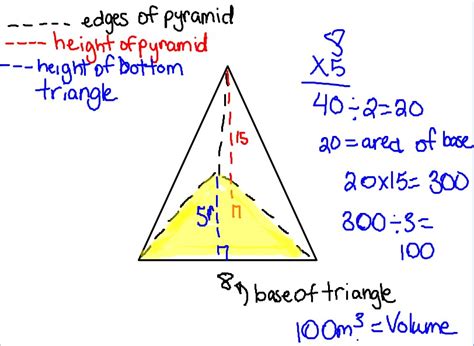 ----- edges of pyramid
---- height of pyramid
---height of bottom
triangle
8
X5
40÷2=20
20=area of base
20x15=300
300÷3=
100
15
5
8
base of triangle
100m³=Volume